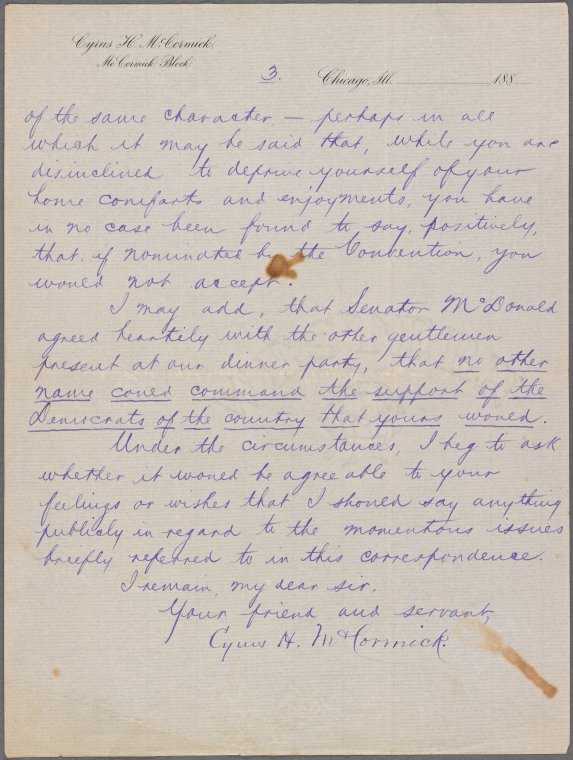 Cyrus H. McCormick.
McCormick Block
3. Chicago, Ill. 188
of the same character, — perhaps in all
which it may be said that, while you are
disinclined to deprive yourself of your
home comforts and enjoyments, you have
in no case been found to say, positively,
that, if nominated by the Convention, you
would not accept.
I may add, that Senator McDonald
agreed heartily with the other gentlemen
present at our dinner party, that no other
name could command the support of the
Democrats of the country that yours would.
Under the circumstances, I beg to ask
whether it would be agreeable to your
feelings or wishes that I should say anything
publicly in regard to the momentous issues
briefly referred to in this correspondence.
I remain, my dear sir,
Your friend and servant,
Cyrus H. McCormick.